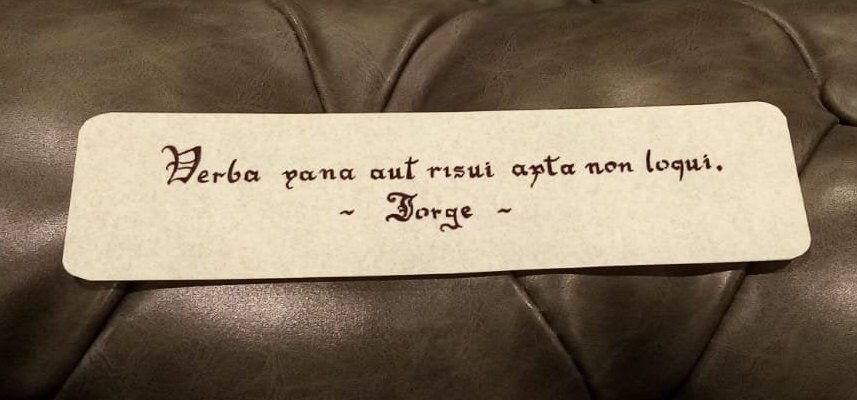 Verba vana aut risui apta non loqui.
~ Jorge ~